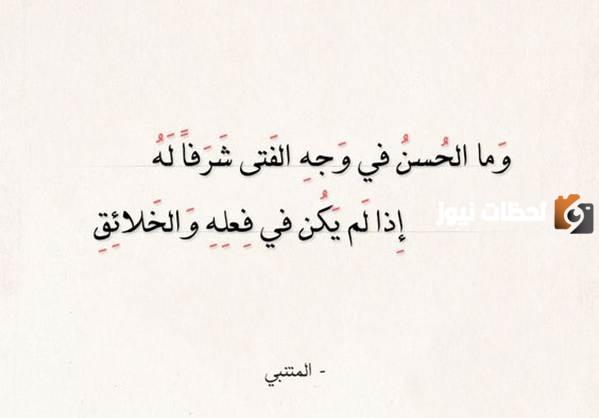 وَما الحُسنُ في وَجهِ الفَتى شَرَفاً لَهُ
إِذا لَم يَكُن في فِعلِهِ وَالخَلائِقِ
لحظات نيوز
- المتنبي